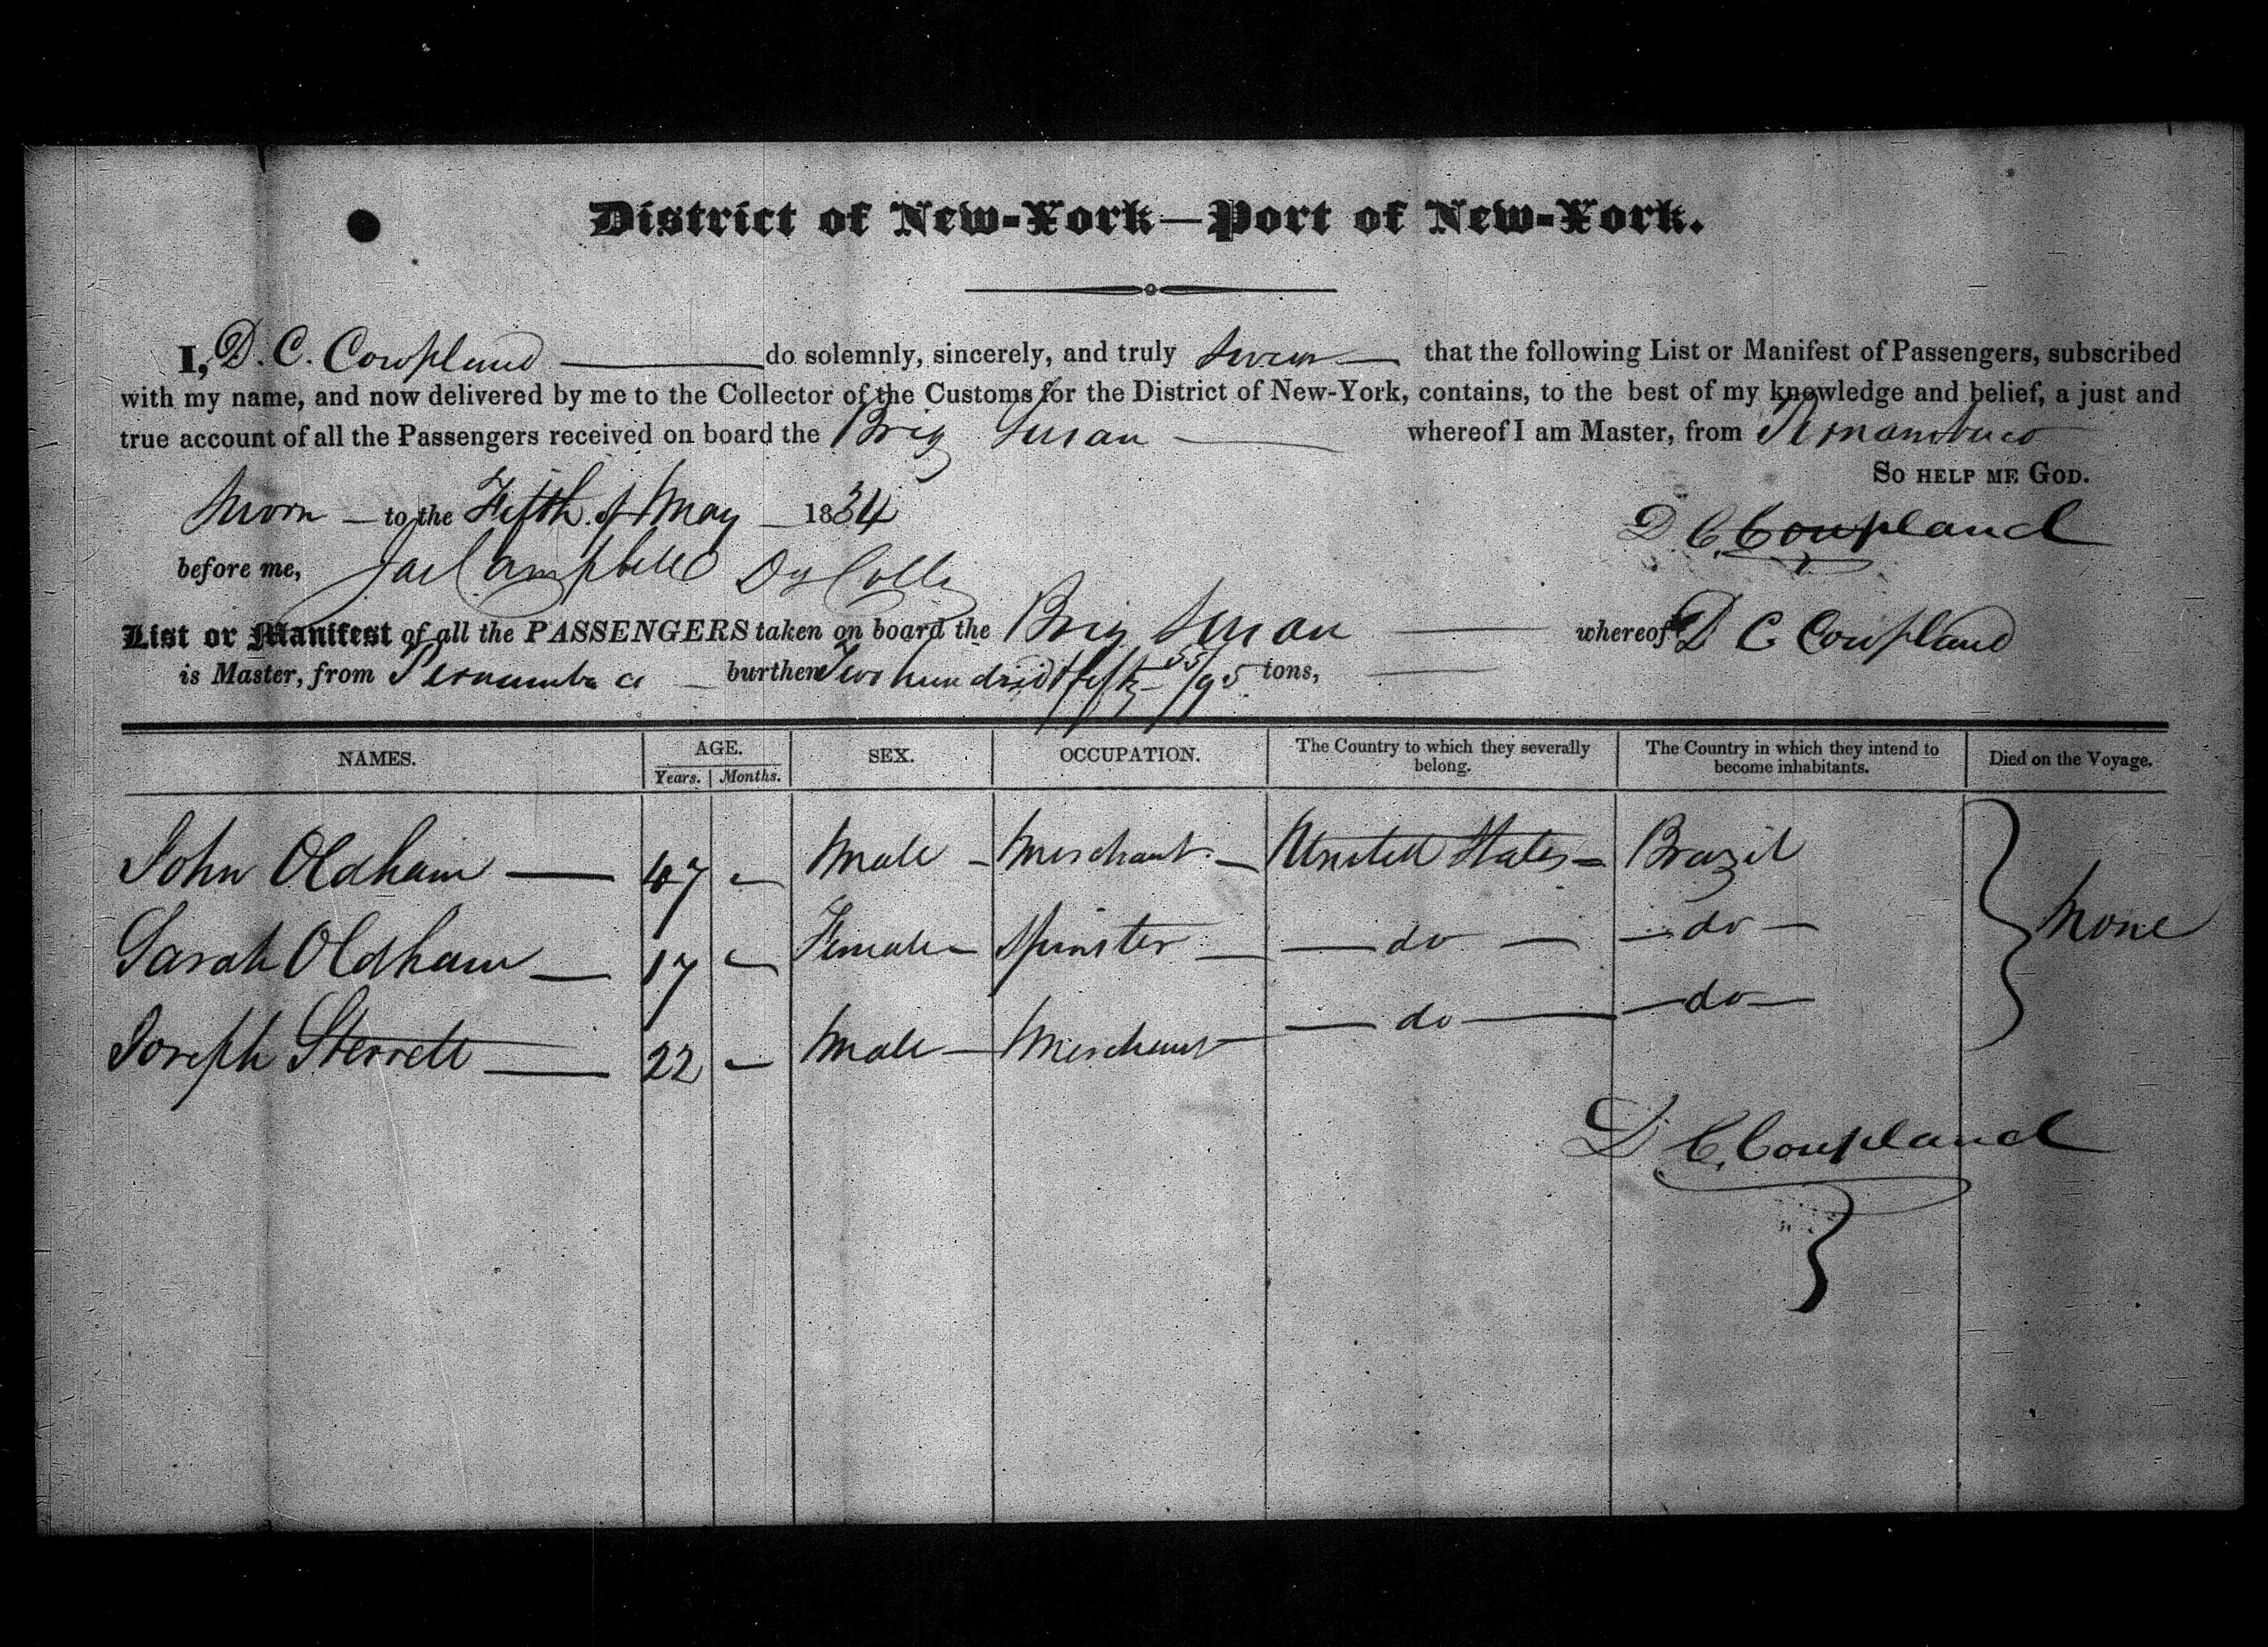 District of New-York—Port of New-York.
I, D. C. Cowpland — do solemnly, sincerely, and truly swear — that the following List or Manifest of Passengers, subscribed
with my name, and now delivered by me to the Collector of the Customs for the District of New-York, contains, to the best of my knowledge and belief, a just and
true account of all the Passengers received on board the Brig Susan — whereof I am Master, from Pernambuco
So help me God.
Sworn — to the Fifth of May — 1834
D C. Coupland
before me, Jas Campbell Dy Colle
List or Manifest of all the PASSENGERS taken on board the Brig Susan — whereof D C Cowpland
is Master, from — burthen Two hundred & fifty 55/95 tons, —
NAMES. AGE. Years. Months. SEX. OCCUPATION. The Country to which they severally belong. The Country in which they intend to become inhabitants. Died on the Voyage.
John Oldham — 47 — Male — Merchant — United States — Brazil
Sarah Oldham — 17 — Female — Spinster — do — do — None
Joseph Sterrett — 22 — Male — Merchant — do — do —
D C. Coupland